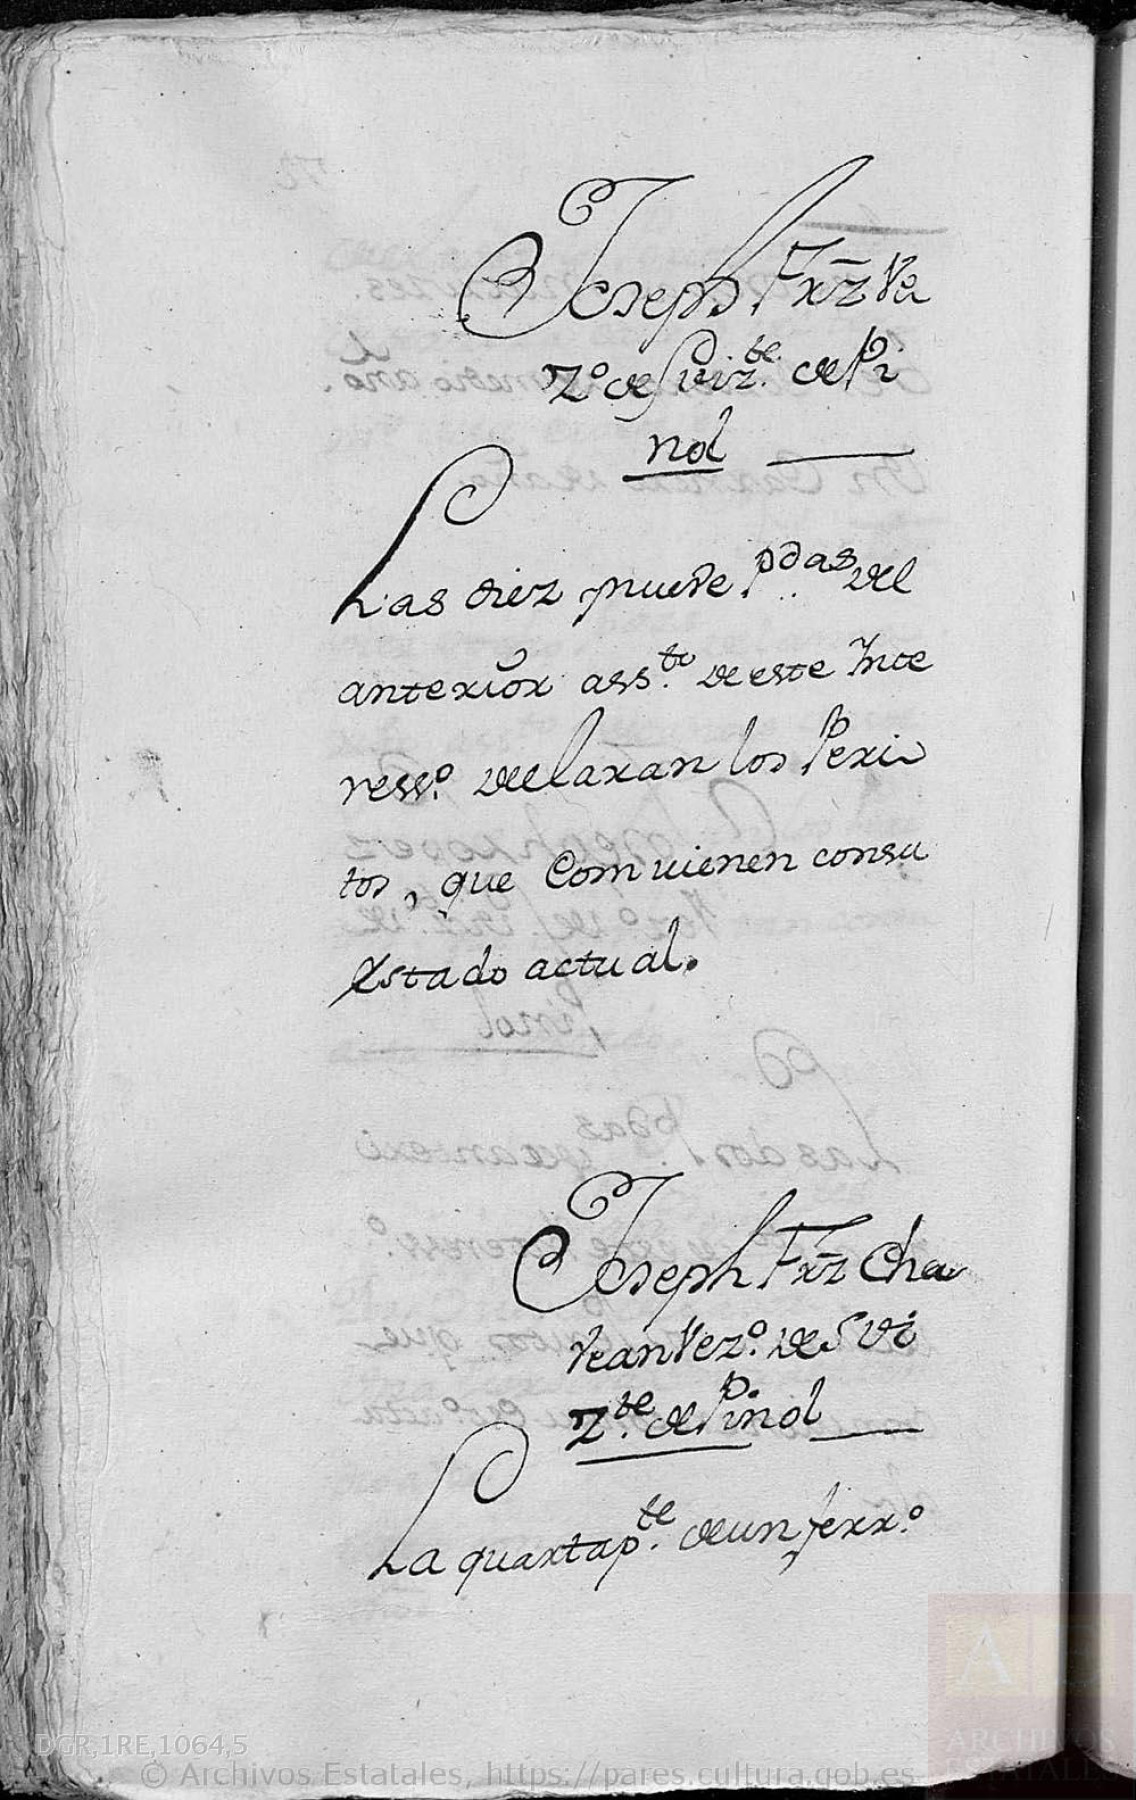 Joseph Frz Ve
zº de S Viz.te de Pi
nol
Las diez nueve P.das del
anterior ass.to de este Inte
ress.º declaran los Peri
tos, que Combienen consu
Estado actual.
Joseph Frz Cha
vean Vez.º de S Vi
z.te de Pinol
La quarta p.te de un ferr.º
DGR,1RE,1064,5
© Archivos Estatales, https://pares.cultura.gob.es
AE
ARCHIVOS
ESTATALES